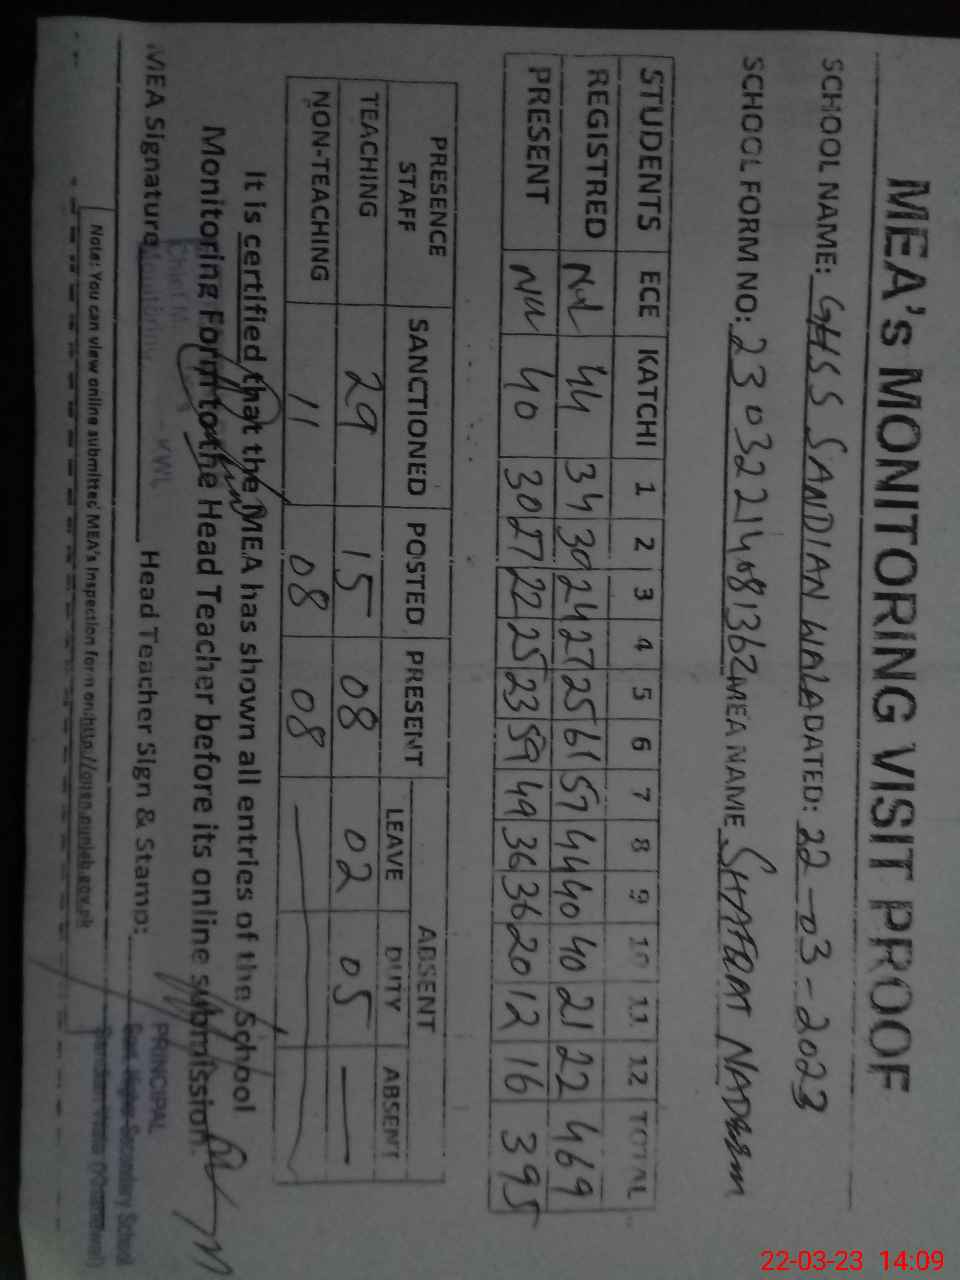 MEA's MONITORING VISIT PROOF
SCHOOL NAME: GHSS SANDIAN WALA DATED: 22-03-2023
SCHOOL FORM NO: 23032214081362 MEA NAME SHAFQAT NADEEM
STUDENTS ECE KATCHI 1 2 3 4 5 6 7 8 9 10 11 12 TOTAL
REGISTRED Nil 44 34 30 24 27 25 61 57 44 40 40 21 22 469
PRESENT Nil 40 30 27 22 25 23 59 49 36 36 20 12 16 395
PRESENCE STAFF SANCTIONED POSTED PRESENT ABSENT
LEAVE DUTY ABSENT
TEACHING 29 15 08 02 05 —
NON-TEACHING 11 08 08 —
It is certified that the MEA has shown all entries of the School
Monitoring Form to the Head Teacher before its online submission.
MEA Signature Head Teacher Sign & Stamp:
KWL
PRINCIPAL
Govt. Higher Secondary School
(Khanewal)
Note: You can view online submitted MEA's Inspection form on:http://open.punjab.gov.pk
22-03-23 14:09